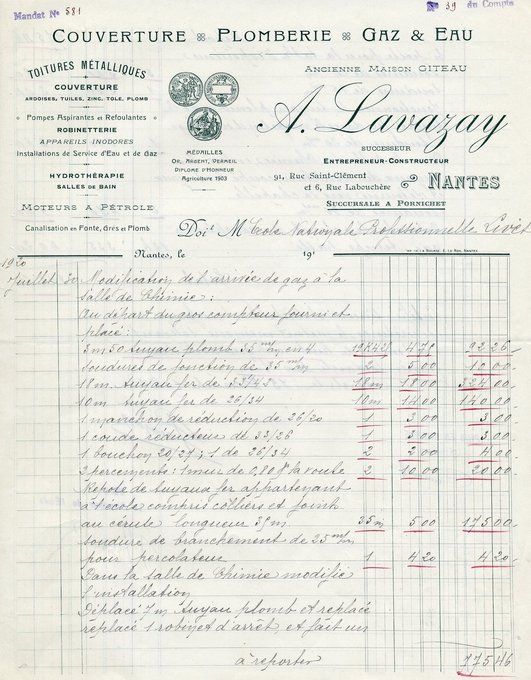 Mandat № 581
№ 39 du Compte
COUVERTURE PLOMBERIE GAZ & EAU
TOITURES MÉTALLIQUES
COUVERTURE
ARDOISES, TUILES, ZINC, TOLE, PLOMB
Pompes Aspirantes et Refoulantes
ROBINETTERIE
APPAREILS INODORES
Installations de Service d'Eau et de Gaz
HYDROTHÉRAPIE
SALLES DE BAIN
MOTEURS A PÉTROLE
Canalisation en Fonte, Grès et Plomb
MÉDAILLES
OR, ARGENT, VERMEIL
DIPLOME D'HONNEUR
Agriculture 1903
ANCIENNE MAISON GITEAU
A. Lavazay
SUCCESSEUR
ENTREPRENEUR-CONSTRUCTEUR
91, Rue Saint-Clément
et 6, Rue Labouchère
NANTES
SUCCURSALE A PORNICHET
Doit M Ecole Nationale Professionnelle Livet
Nantes, le 191
IMP. DE LA BOURSE, E. LE ROY, NANTES
1920
Juillet 30 Modification de l'arrivée de gaz à la
salle de Chimie :
Au départ du gros compteur fourni et
placé :
3m50 tuyau plomb 35 m/m en 4 19K42 4 75 92 26
soudures de jonction de 35 m/m 2 5 00 10 00
18m tuyau fer de 33/43 18m 18 00 324 00
10m tuyau fer de 26/34 10m 14 00 140 00
1 manchon de réduction de 26/20 1 3 00 3 00
1 coude réducteur de 33/26 1 3 00 3 00
1 bouchon 20/27 ; 1 de 26/34 2 2 00 4 00
2 percements : 1 mur de 0,80 la route 2 10 00 20 00
Repose de tuyaux fer appartenant
à l'école compris colliers et joints
au céruse longueur 35m 35m 5 00 175 00
soudure de branchement de 25 m/m
pour percolateur 1 4 20 4 20
Dans la salle de Chimie modifié
l'installation
Déplacé 7m tuyau plomb et replacé
replacé 1 robinet d'arrêt et fait un
à reporter 775 46